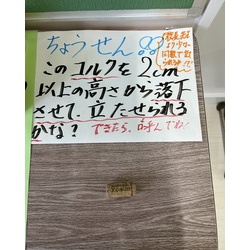 ちょうせん!!
このコルクを2cm
以上の高さから落下
させて、立たせられる
かな？ できたら、呼んでね!